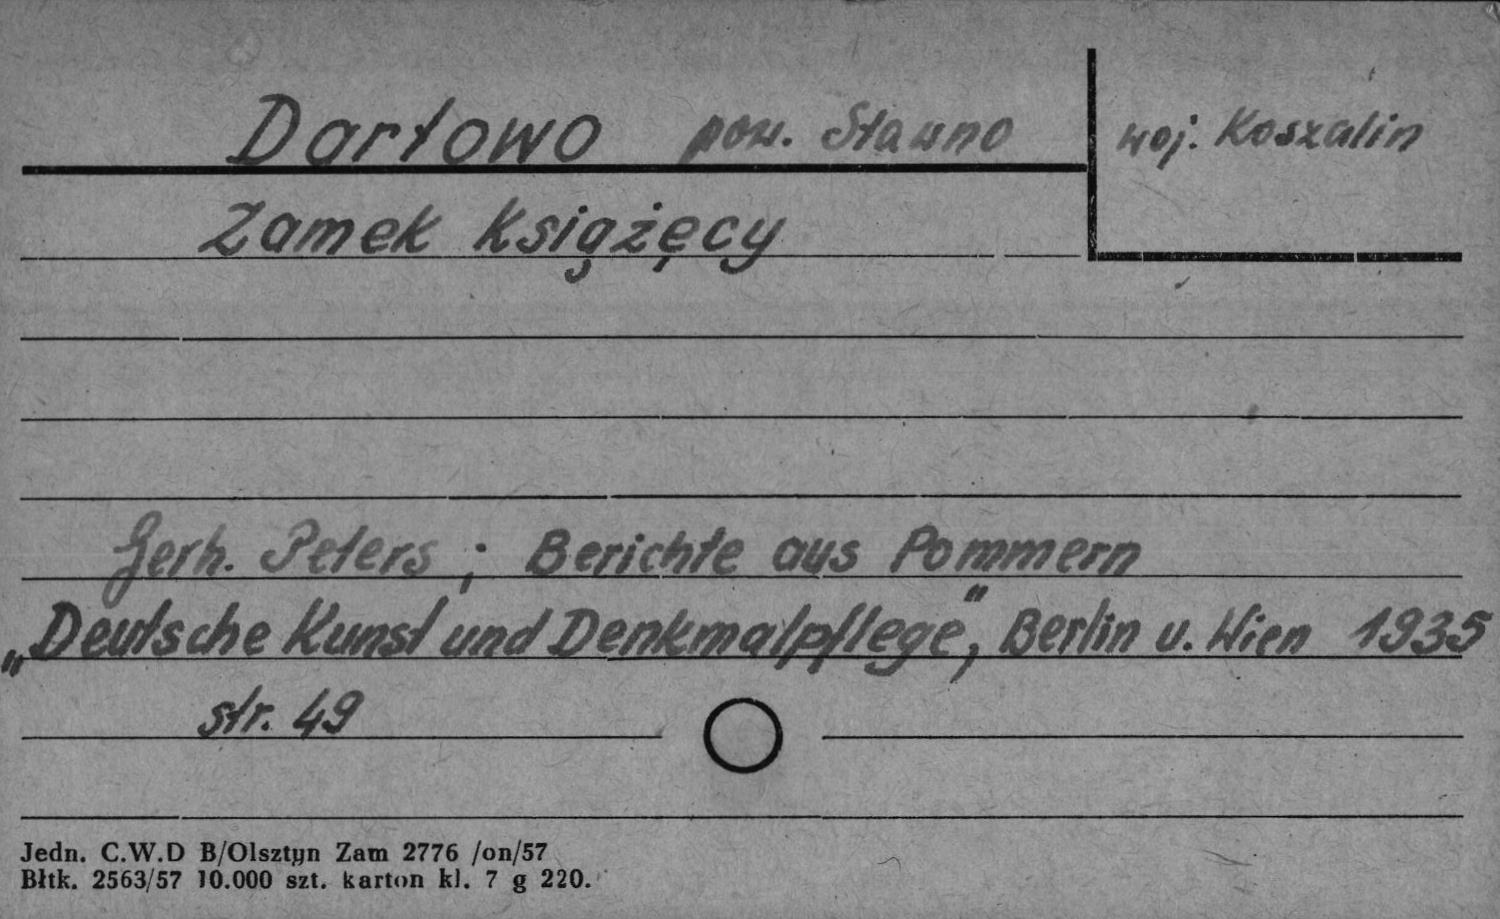 Darłowo pow. Sławno woj. Koszalin
Zamek Książęcy
Gerh. Peters ; Berichte aus Pommern
„Deutsche Kunst und Denkmalpflege", Berlin u. Wien 1935
str. 49
Jedn. C.W.D B/Olsztyn Zam 2776 /on/57
Błtk. 2563/57 10.000 szt. karton kl. 7 g 220.